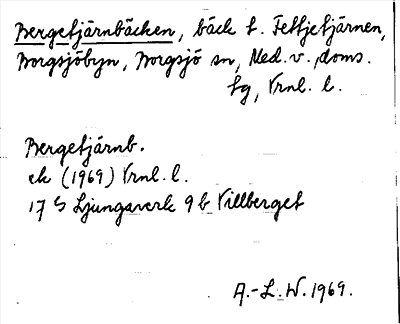 Bergetjärnbäcken, bäck t. Fettjetjärnen,
Borgsjöbyn, Borgsjö sn, Med. v. doms.
tg, Vrnl. l.
Bergetjärnb.
ek (1969) Vrnl. l.
17 G Ljungaverk 9 b Villberget
A.-L. W. 1969.